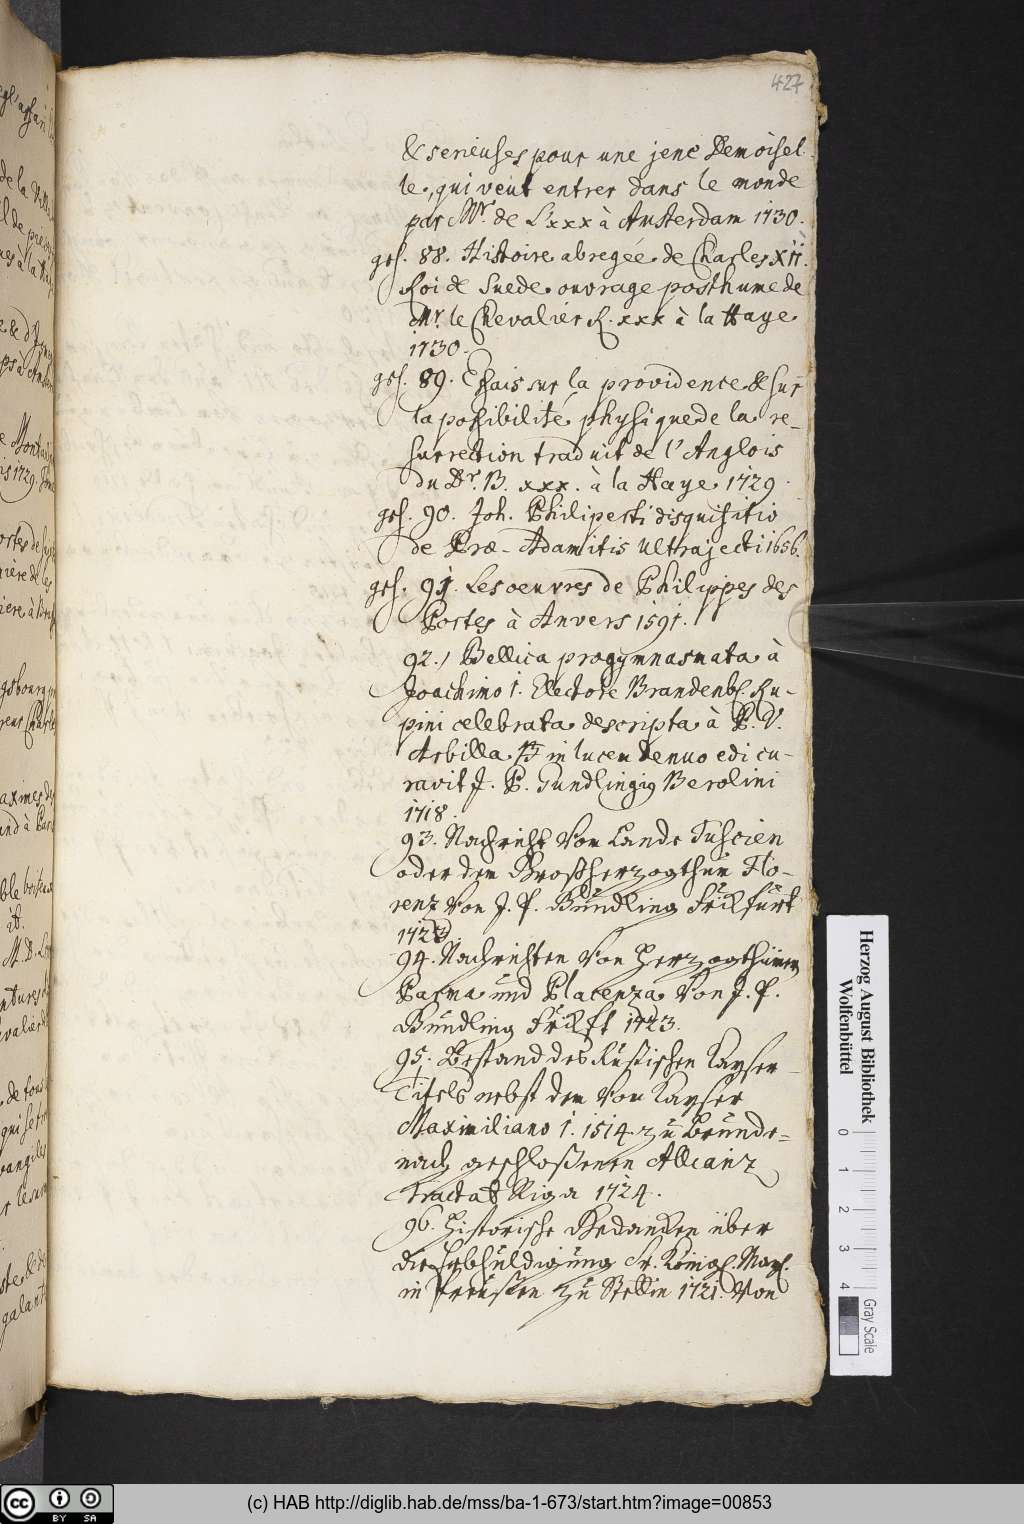 427
& serieuses pour une jene Demoisel
le, qui veut entrer dans le monde
par Mr. de L'xxx à Amsterdam 1730.
ges. 88. Histoire abregée de Charles XII.
Roi de Suede ouvrage posthume de
Mr. le Chevalier R. xxx à la Haye
1730.
ges. 89. Essais sur la providence & sur
la possibilité physique de la re-
surrection traduit de l'Anglois
du Dr. B. xxx. à la Haye 1729.
ges. 90. Joh. Philiperti disquisitio
de Præ-Adamitis Ultrajecti 1656.
ges. 91. Les oeuvres de Philippes des
Portes à Anvers 1591.
92.) Bellica progymnasmata à
Joachimo I. Electore Brandenb. Ru-
pini celebrata descripta à P. V.
Arbilla in lucem denuo edi cu-
ravit J. P. Gundlingig Berolini
1718.
93. Nachricht Von Lande Tuscien
oder dem Großherzogthum Flo-
renz Von J. P. Gundling Frkfurt
1723
94. Nachrichten Von Herzogthümern
Parma und Placenza Von J. P.
Gundling Frkft 1723.
95. Bestand des Rußischen Kayser-
Titels nebst dem Von Kayser
Maximiliano I. 1514 zu Gmunde=
nach geschloßenen Allianz
Tractat Riga 1724.
96. Historische Gedanken über
die Erbhuldigung Sr. Königl. May.
in Preußen zu Stettin 1721. Von
Herzog August Bibliothek
Wolfenbüttel
0 1 2 3 4
Gray Scale
CC BY SA
(c) HAB http://diglib.hab.de/mss/ba-1-673/start.htm?image=00853